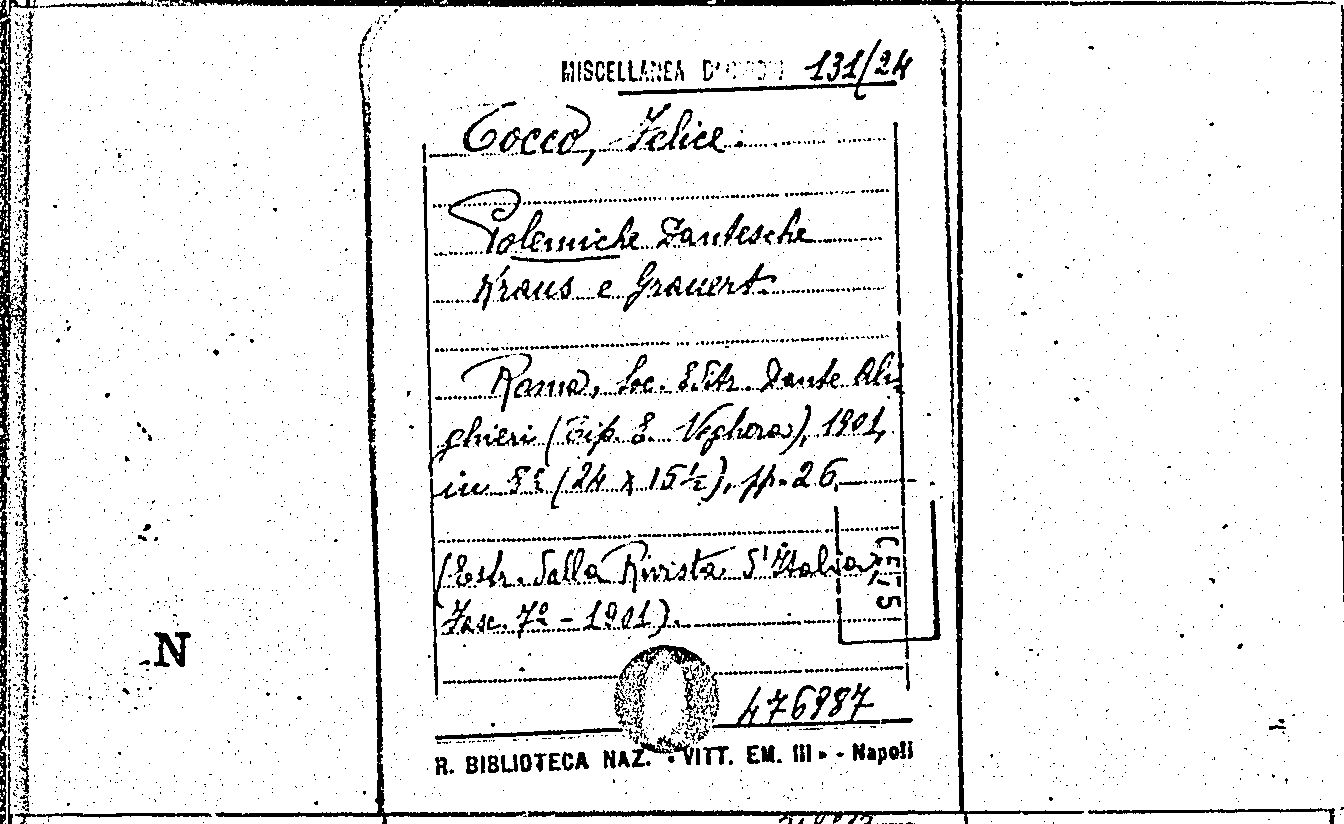 MISCELLANEA 131/24
Tocco, Felice.
Polemiche Dantesche
Kraus e Grauert.
Roma, Soc. Editr. Dante Ali-
ghieri (Tip. E. Voghera), 1901,
in 8º (24 x 15½), pp. 26.
(Estr. dalla Rivista d'Italia,
Fasc. 7º - 1901).
N
476987
R. BIBLIOTECA NAZ. "VITT. EM. III" - Napoli